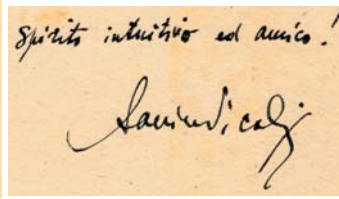 Spirito intuitivo ed amico!